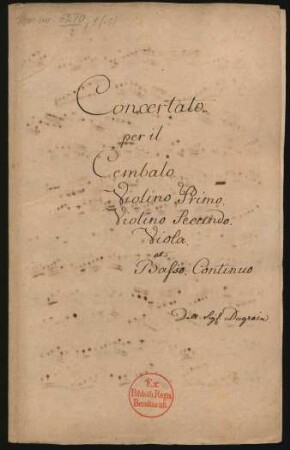 Concertato
per il
Cembalo
Violino Primo.
Violino Secundo.
Viola.
et
Basso Continuo
Dell Sigl. Dugrain
Ex
Biblioth. Regia
Berolinensi.